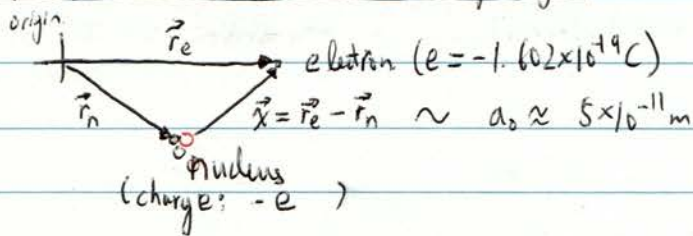 origin
r⃗_e
electron (e = -1.602×10⁻¹⁹C)
r⃗_n
x⃗ = r⃗_e - r⃗_n ~ a₀ ≈ 5×10⁻¹¹m
nucleus
(charge: -e )